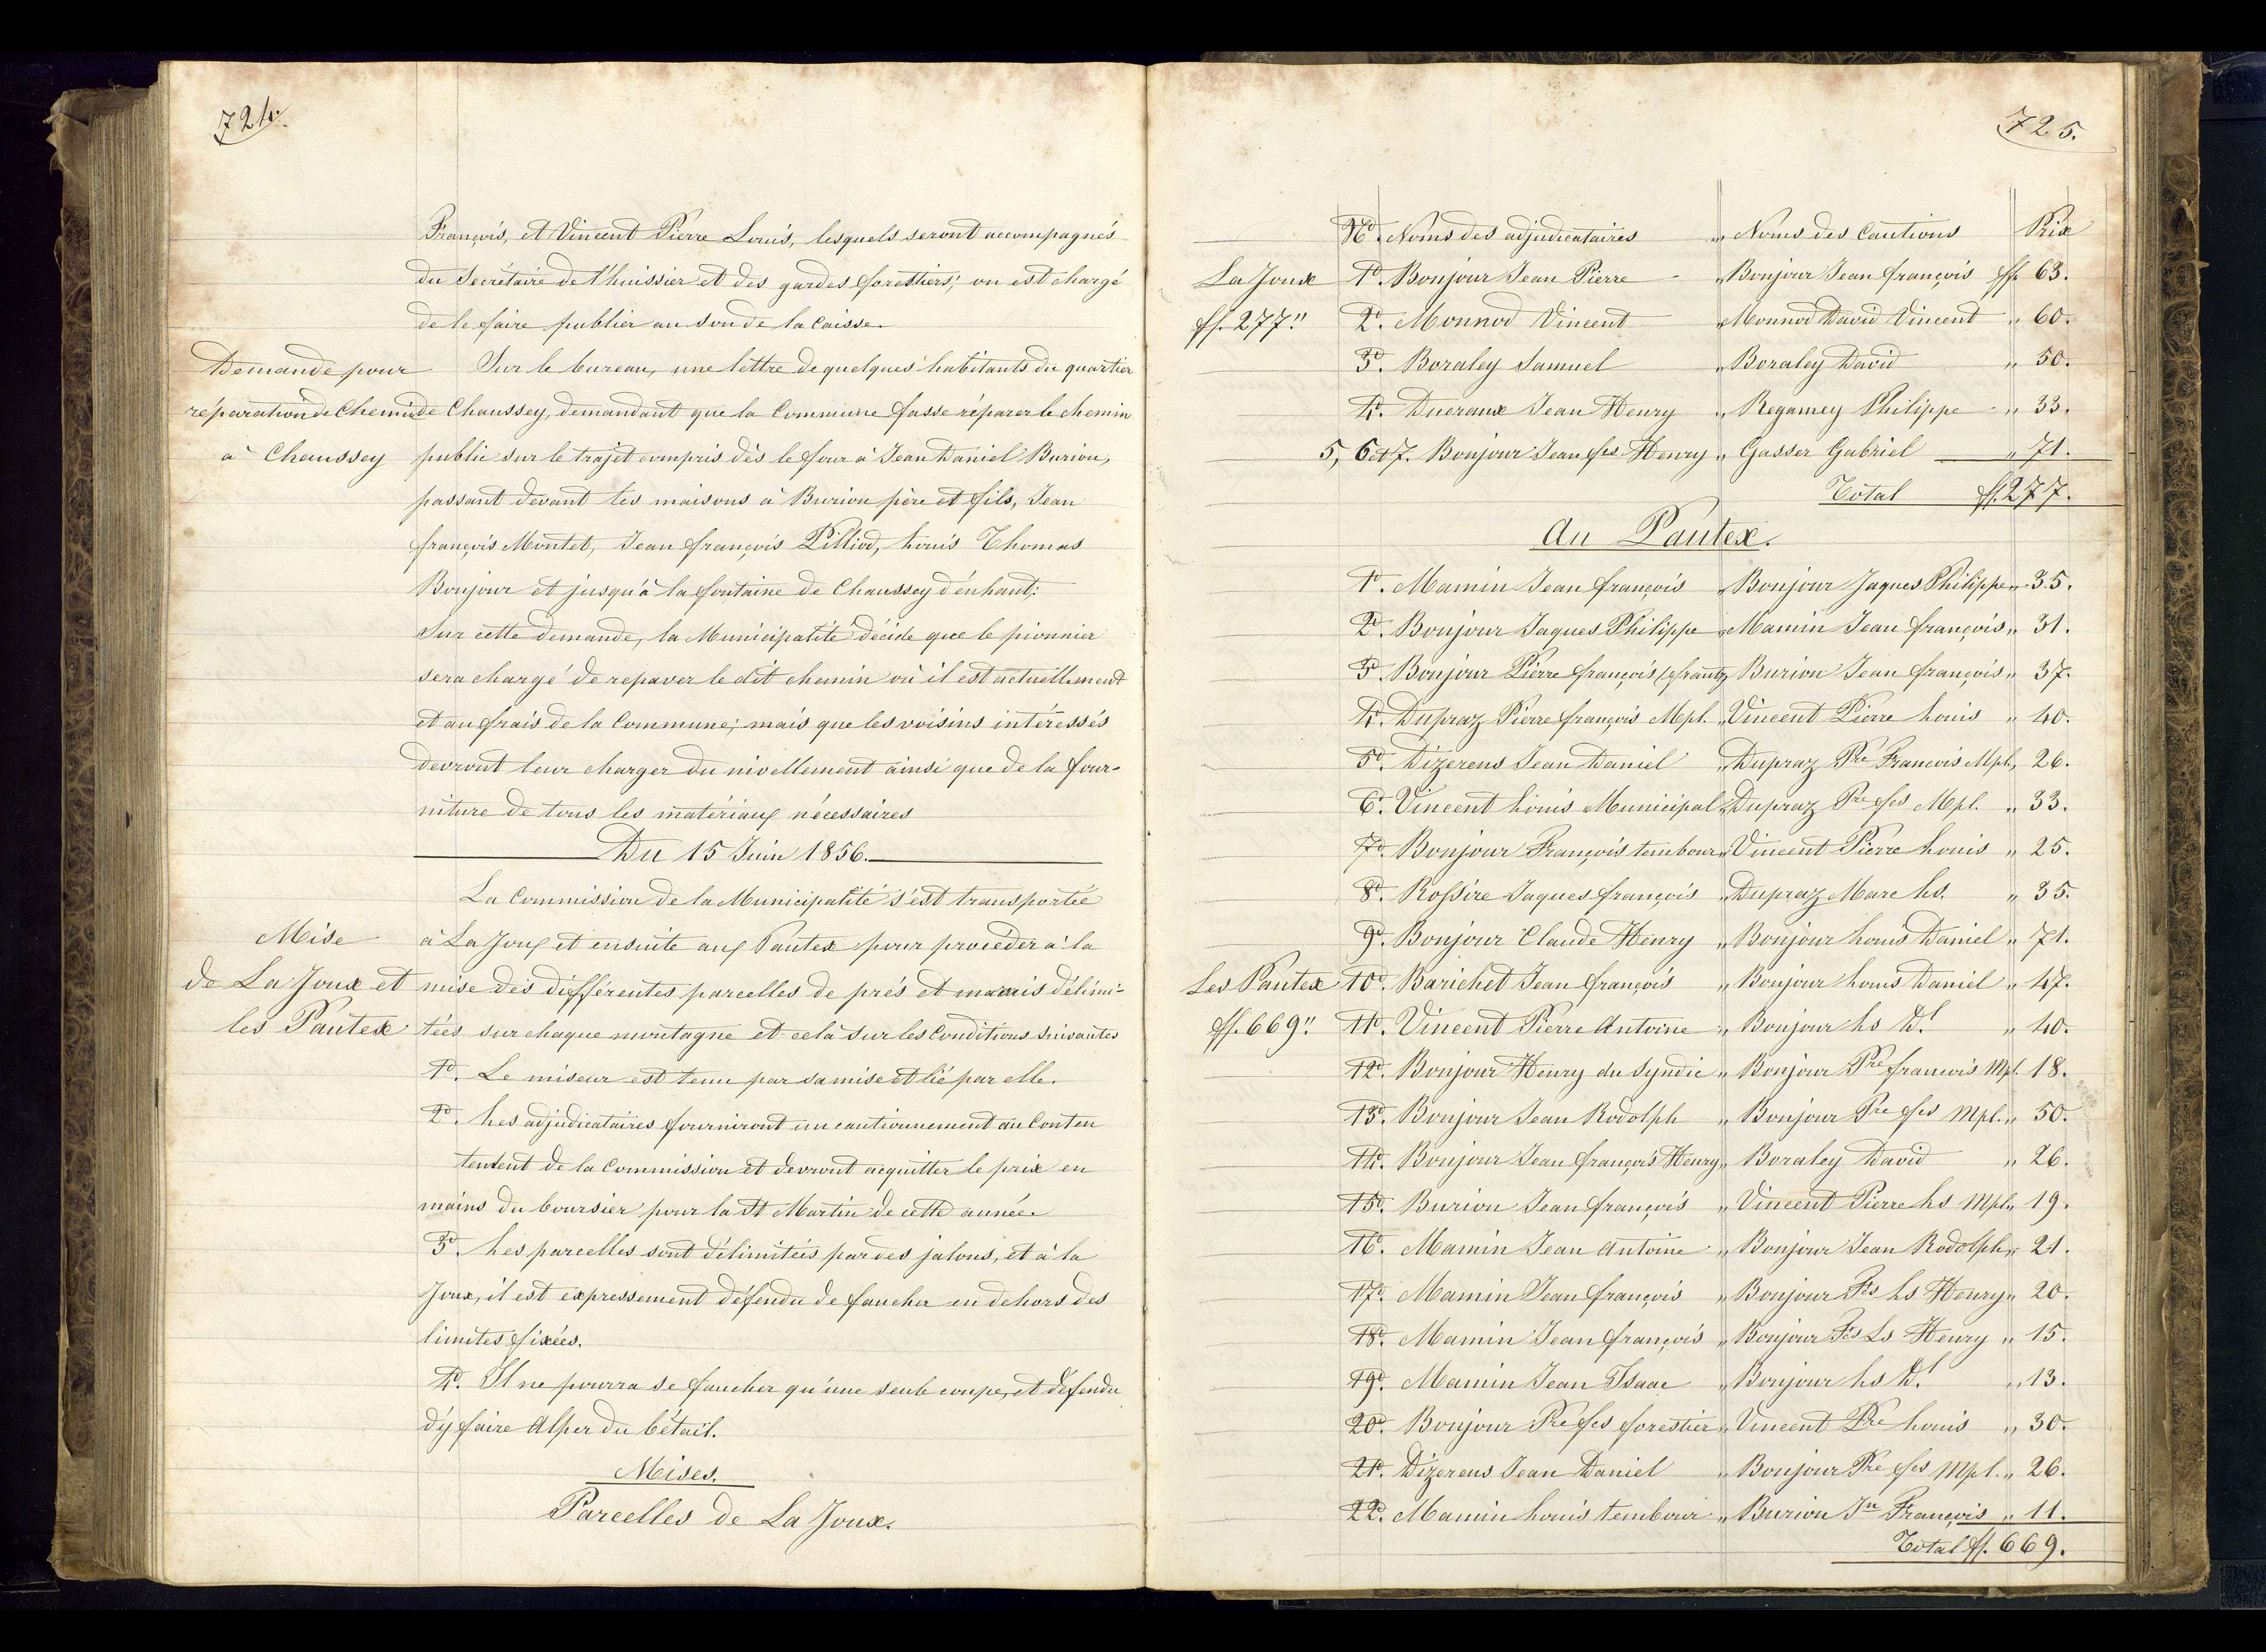 724.
François, et Vincent Pierre Louis, lesquels seront accompagnés
du Secrétaire de l'huissier et des gardes forestiers; on est chargé
de le faire publier au son de la Caisse.
Demande pour
réparation de Chemin
à Chaussey
Sur le bureau, une lettre de quelques habitants du quartier
de Chaussey, demandant que la Commune fasse réparer le chemin
public sur le trajet compris dès le four à Jean Daniel Burion,
passant devant les maisons à Burion père et fils, Jean
françois Montet, Jean françois Pilliod, Louis Thomas
Bonjour et jusqu'à la fontaine de Chaussey d'enhaut;
Sur cette demande, la Municipalité décide que le pionnier
sera chargé de repaver le dit chemin où il est actuellement
et au frais de la Commune; mais que les voisins intéressés
devront leur charger du nivellement ainsi que de la four-
niture de tous les matériaux nécessaires
Du 15 Juin 1856.
La Commission de la Municipalité s'est transportée
Mise
de La Joux et
les Pautex
à La Joux et ensuite aux Pautex pour procéder à la
mise des différentes parcelles de prés et marais délimi-
tées sur chaque montagne et cela sur les Conditions suivantes
1º. Le miseur est tenu par sa mise et lié par elle.
2º. Les adjudicataires fourniront un cautionnement au Conten
tentent de la Commission et devront acquitter le prix en
mains du boursier pour la St Martin de cette année.
3º. Les parcelles sont délimitées par des jalons, et à la
Joux, il est expressement défendu de faucher en dehors des
limites fixées.
4º. Il ne pourra se faucher qu'une seule coupe, et défendu
d'y faire Alper du bétail.
Mises.
Parcelles de La Joux.
725.
Nº. Noms des adjudicataires " Noms des Cautions Prix
La Joux
ff. 277"
1º. Bonjour Jean Pierre " Bonjour Jean françois ff 63.
2º. Monnod Vincent " Monnod David Vincent " 60.
3º. Boraley Samuel " Boraley David " 50.
4º. Ducraux Jean Henry " Regamey Philippe " 33.
5, 6 et 7. Bonjour Jean fçs Henry " Gasser Gabriel " 71.
Total ff. 277.
Au Pautex.
1º. Mamin Jean françois " Bonjour Jaques Philippe " 35.
2º. Bonjour Jaques Philippe " Mamin Jean françois " 31.
3º. Bonjour Pierre françois " Burion Jean françois " 37.
4º. Dupraz Pierre françois Mpl. " Vincent Pierre Louis " 40.
5º. Dizerens Jean Daniel " Dupraz Pre François Mpl. 26.
6º. Vincent Louis Municipal " Dupraz Pre fçs Mpl. " 33.
7º. Bonjour François tembour " Vincent Pierre Louis " 25.
8º. Rossire Jaques françois " Dupraz Marc Ls. " 35.
9º. Bonjour Claude Henry " Bonjour Louis Daniel " 71.
Les Pautex
ff. 669"
10º. Barichet Jean françois " Bonjour Louis Daniel " 47.
11º. Vincent Pierre Antoine " Bonjour Ls Dl " 40.
12º. Bonjour Henry du Syndic " Bonjour Pre francois Mpl. 18.
13º. Bonjour Jean Rodolph " Bonjour Pre fçs Mpl. " 50.
14º. Bonjour Jean françois Henry " Boraley David " 26.
15º. Burion Jean françois " Vincent Pierre Ls Mpl. " 19.
16º. Mamin Jean Antoine " Bonjour Jean Rodolph " 21.
17º. Mamin Jean françois " Bonjour Fçs Ls Henry " 20.
18º. Mamin Jean françois " Bonjour Fçs Ls Henry " 15.
19º. Mamin Jean Isaac " Bonjour Ls Dl " 13.
20º. Bonjour Pre fçs forestier " Vincent Pre Louis " 30.
21º. Dizerens Jean Daniel " Bonjour Pre fçs Mpl. " 26.
22º. Mamin Louis tembour " Burion Jn François " 11.
Total ff. 669.